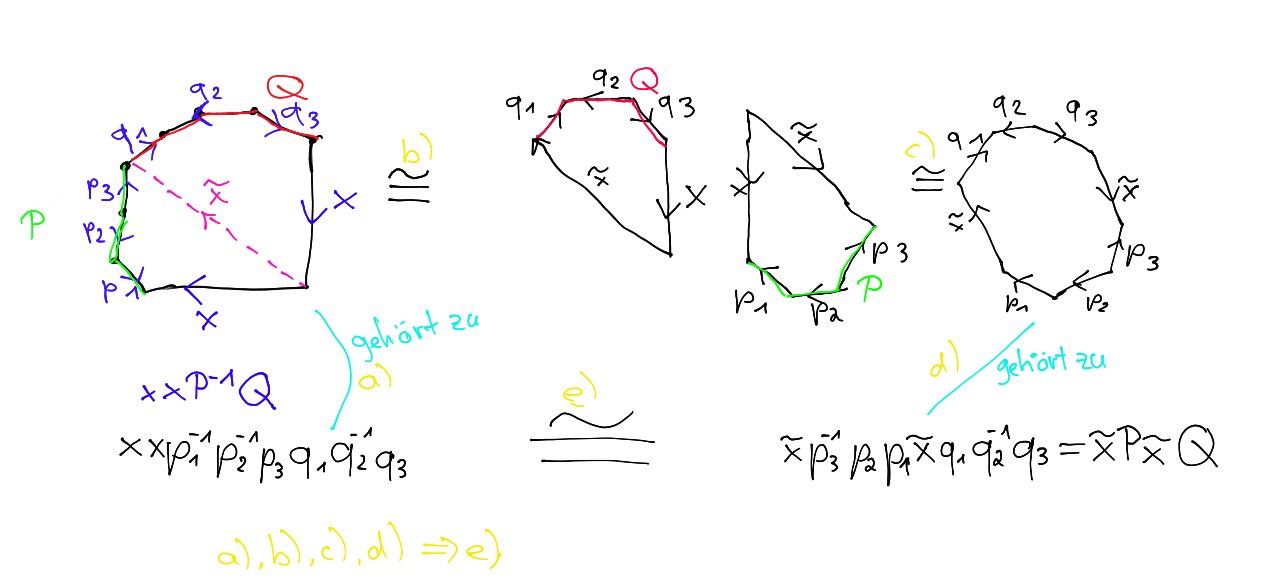 q₂ Q
q₁ q₃
p₃ x̃ x
P p₂
p₁
x
b)
≅
q₂ Q
q₁ q₃
x̃ x
x̃
x
p₃
p₁ p₂ P
c)
≅
q₂ q₃
q₁
x̃ x̃
p₃
p₁ p₂
gehört zu
a)
d) gehört zu
xxP⁻¹Q
e)
xxp₁⁻¹p₂⁻¹p₃q₁q₂⁻¹q₃ ≅ x̃p₃⁻¹p₂p₁x̃q₁q₂⁻¹q₃=x̃Px̃Q
a),b),c),d) ⇒e)